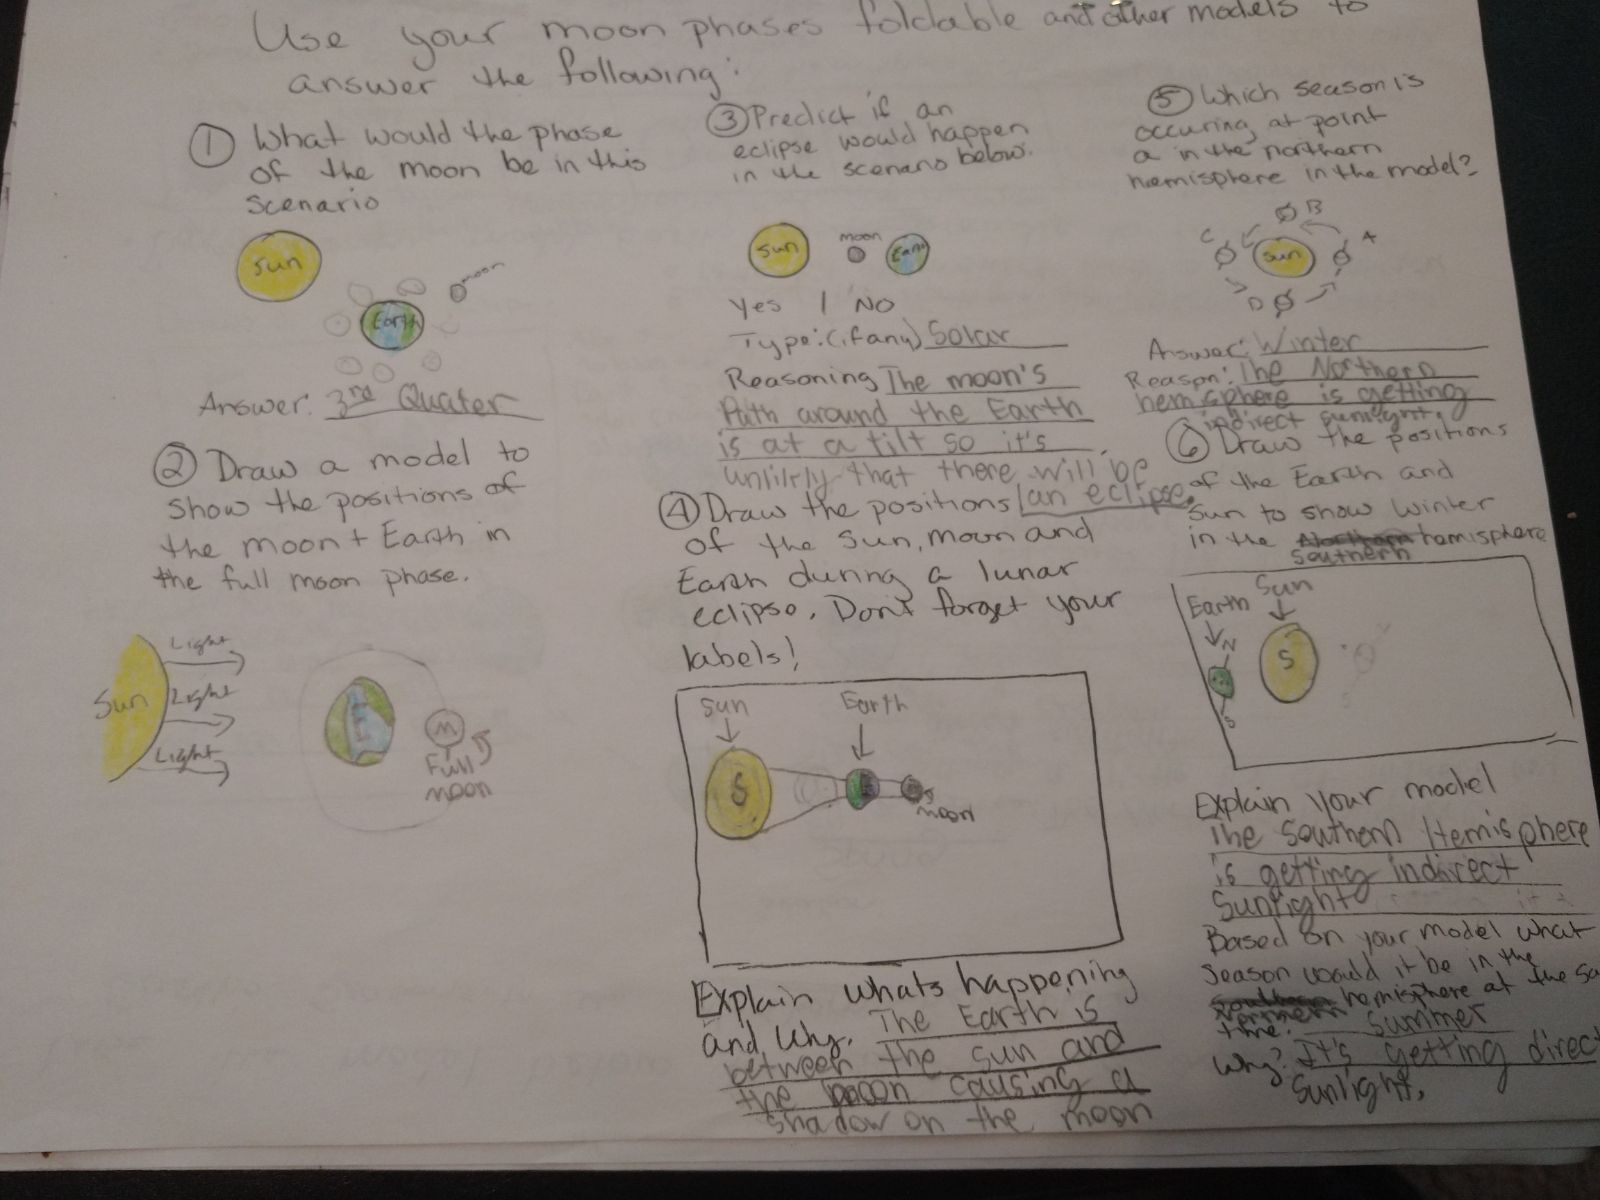 Use your moon phases foldable and other models to
answer the following:
① What would the phase
of the moon be in this
scenario
Sun
moon
Earth
Answer: 3rd Quater
② Draw a model to
show the positions of
the moon + Earth in
the full moon phase.
Light
Sun
Light
Light
M
Full
moon
③ Predict if an
eclipse would happen
in the scenario below.
Sun
moon
Earth
Yes / No
Type: (if any) Solar
Reasoning The moon's
Path around the Earth
is at a tilt so it's
unlikly that there will be
an eclipse.
④ Draw the positions
of the sun, moon and
Earth during a lunar
eclipse. Don't forget your
labels!
Sun
Earth
S
moon
Explain whats happening
and why. The Earth is
between the sun and
the moon causing a
shadow on the moon
⑤ Which season is
occuring at point
a in the northern
hemisphere in the model?
B
C
A
Sun
D
Answer: Winter
Reason: The Northern
hemisphere is getting
indirect sunlight.
⑥ Draw the positions
of the Earth and
Sun to show winter
in the Northern hemisphere
Southern
Sun
Earth
N
S
S
Explain your model
The Southern Hemisphere
is getting indirect
Sunlight
Based on your model what
season would it be in the
hemisphere at the sa
northern
time? Summer
Why? It's getting direct
Sunlight.